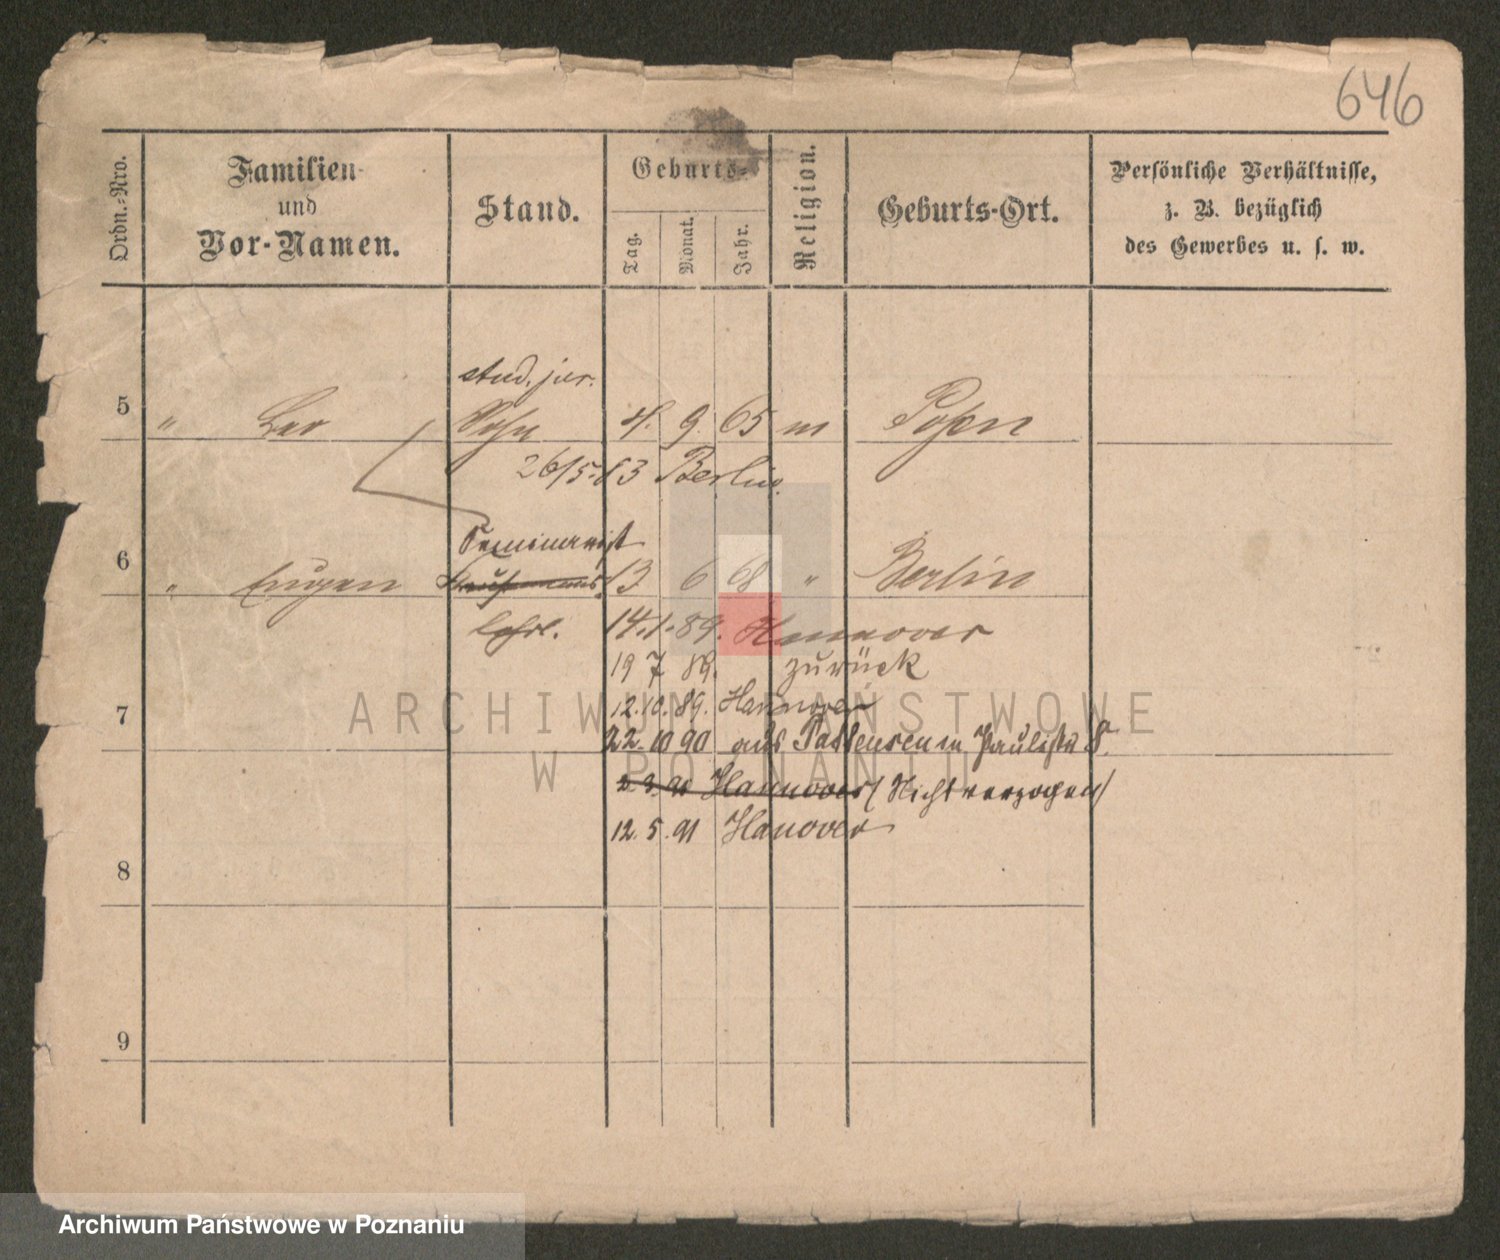 646
Ordn.-Nro.
Familien-
und
Vor-Namen.
Stand.
Geburts-
Tag.
Monat.
Jahr.
Religion.
Geburts-Ort.
Persönliche Verhältnisse,
z. B. bezüglich
des Gewerbes u. s. w.
stud. jur.
5 " Leo Sohn 4. 9. 65 m Posen
26/5. 83 Berlin.
Seminarist
6 " Eugen Kaufmanns 13 6 68 " Berlin
lehrl. 14. 1. 89. Hannover
19 7 89. zurück
7 12. 10. 89. Hannover
22. 10 90 aus in Paulistr 8.
2. 3. 91 Hannover (Nicht verzogen)
12. 5. 91 Hanover
8
9
ARCHIWUM PAŃSTWOWE
W POZNANIU
Archiwum Państwowe w Poznaniu